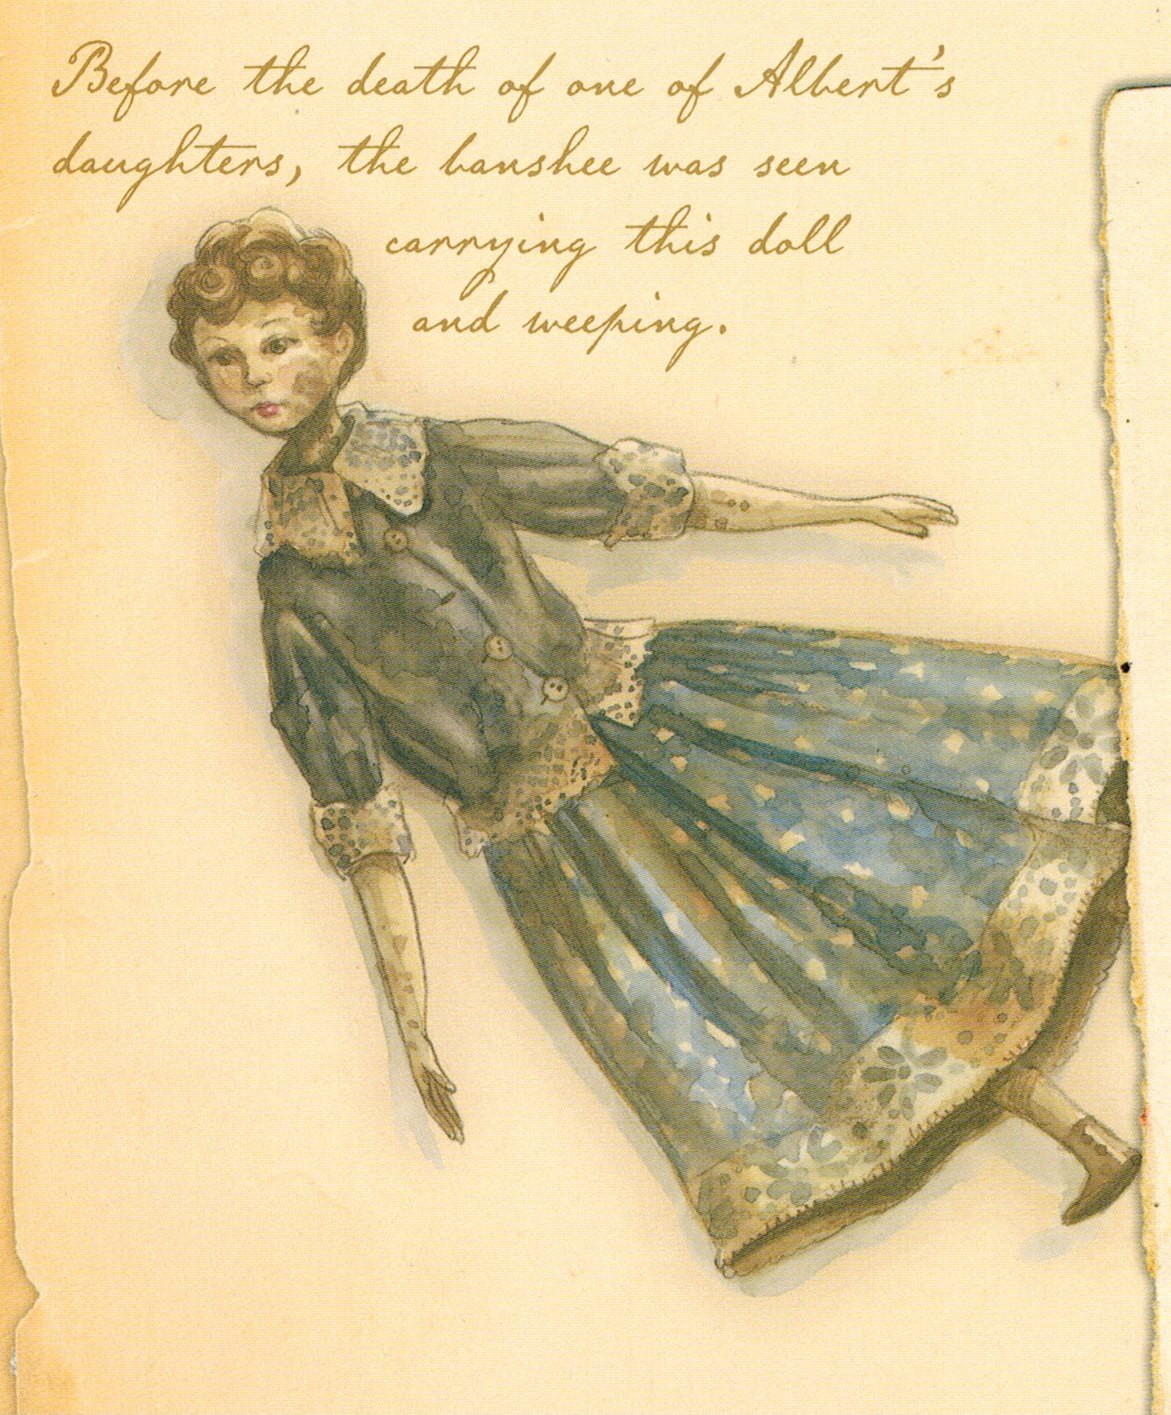 Before the death of one of Albert's
daughters, the banshee was seen
carrying this doll
and weeping.